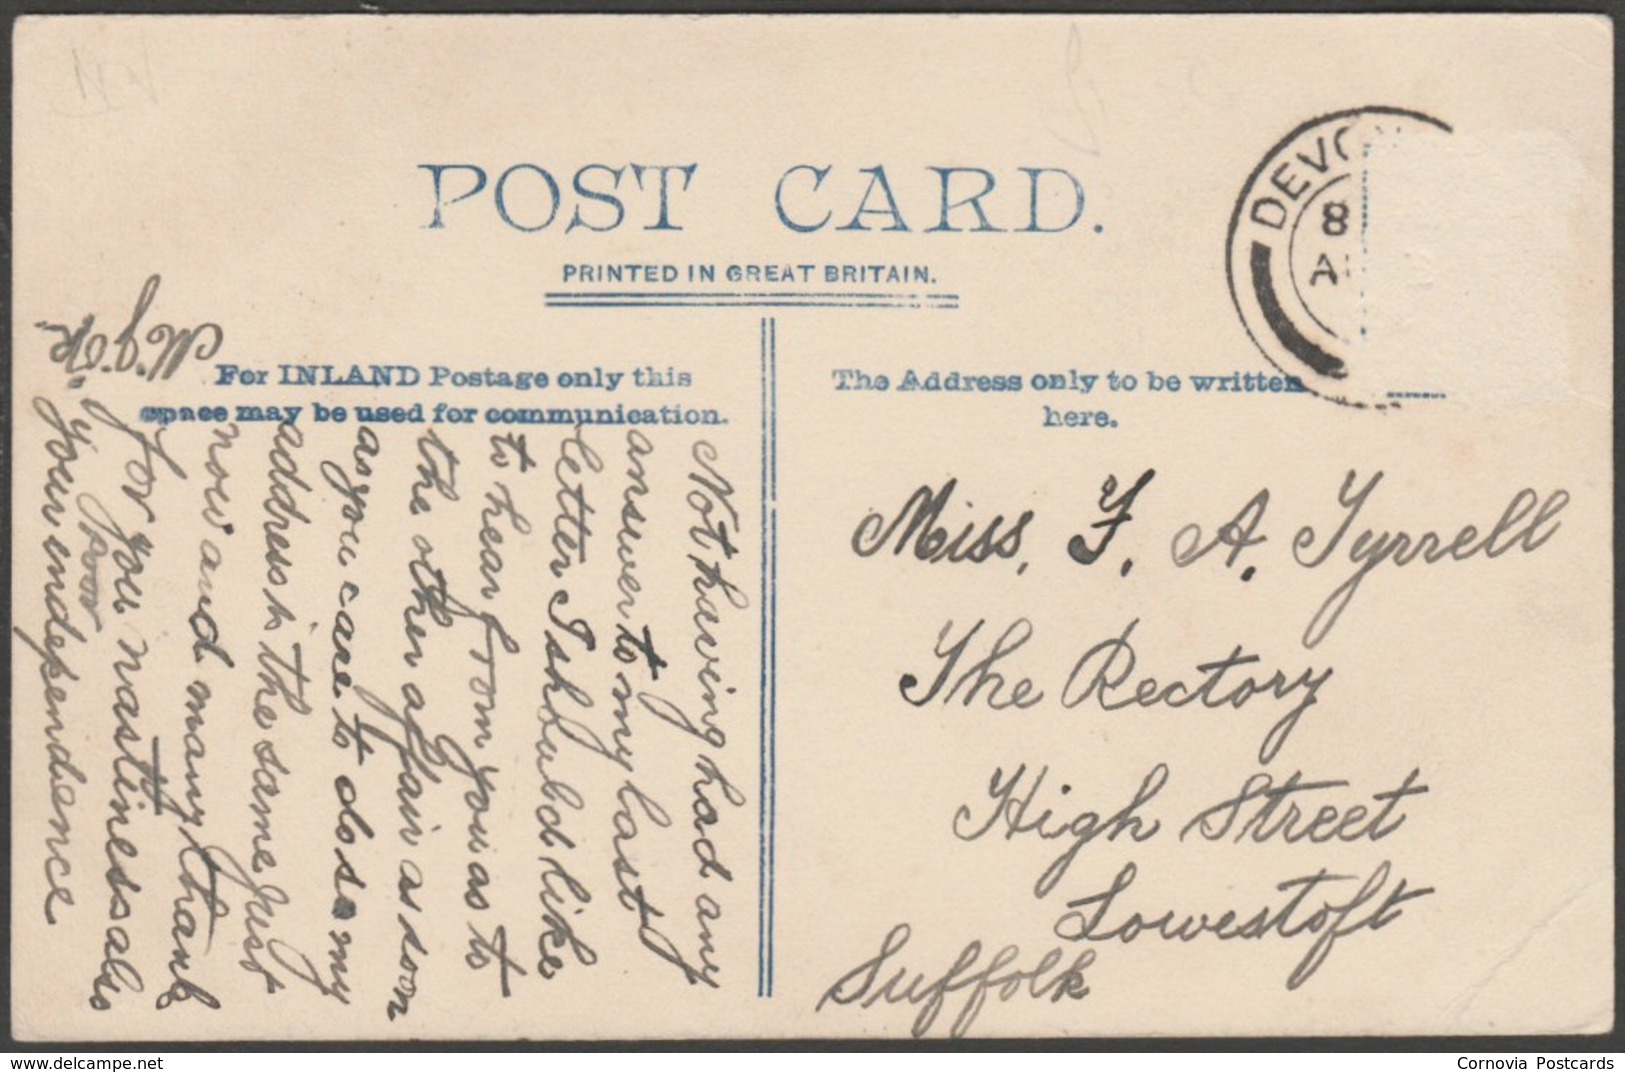 POST CARD.
PRINTED IN GREAT BRITAIN.
For INLAND Postage only this
space may be used for communication.
The Address only to be written
here.
DEVON
8
AU
Not having had any
answer to my last
letter I should like
to hear from you as to
the other affair as soon
as you care to do so my
address is the same just
now and many thanks
for you nastiness also
your independence
Miss. F. A. Tyrrell
The Rectory
High Street
Lowestoft
Suffolk
Cornovia Postcards
www.delcampe.net